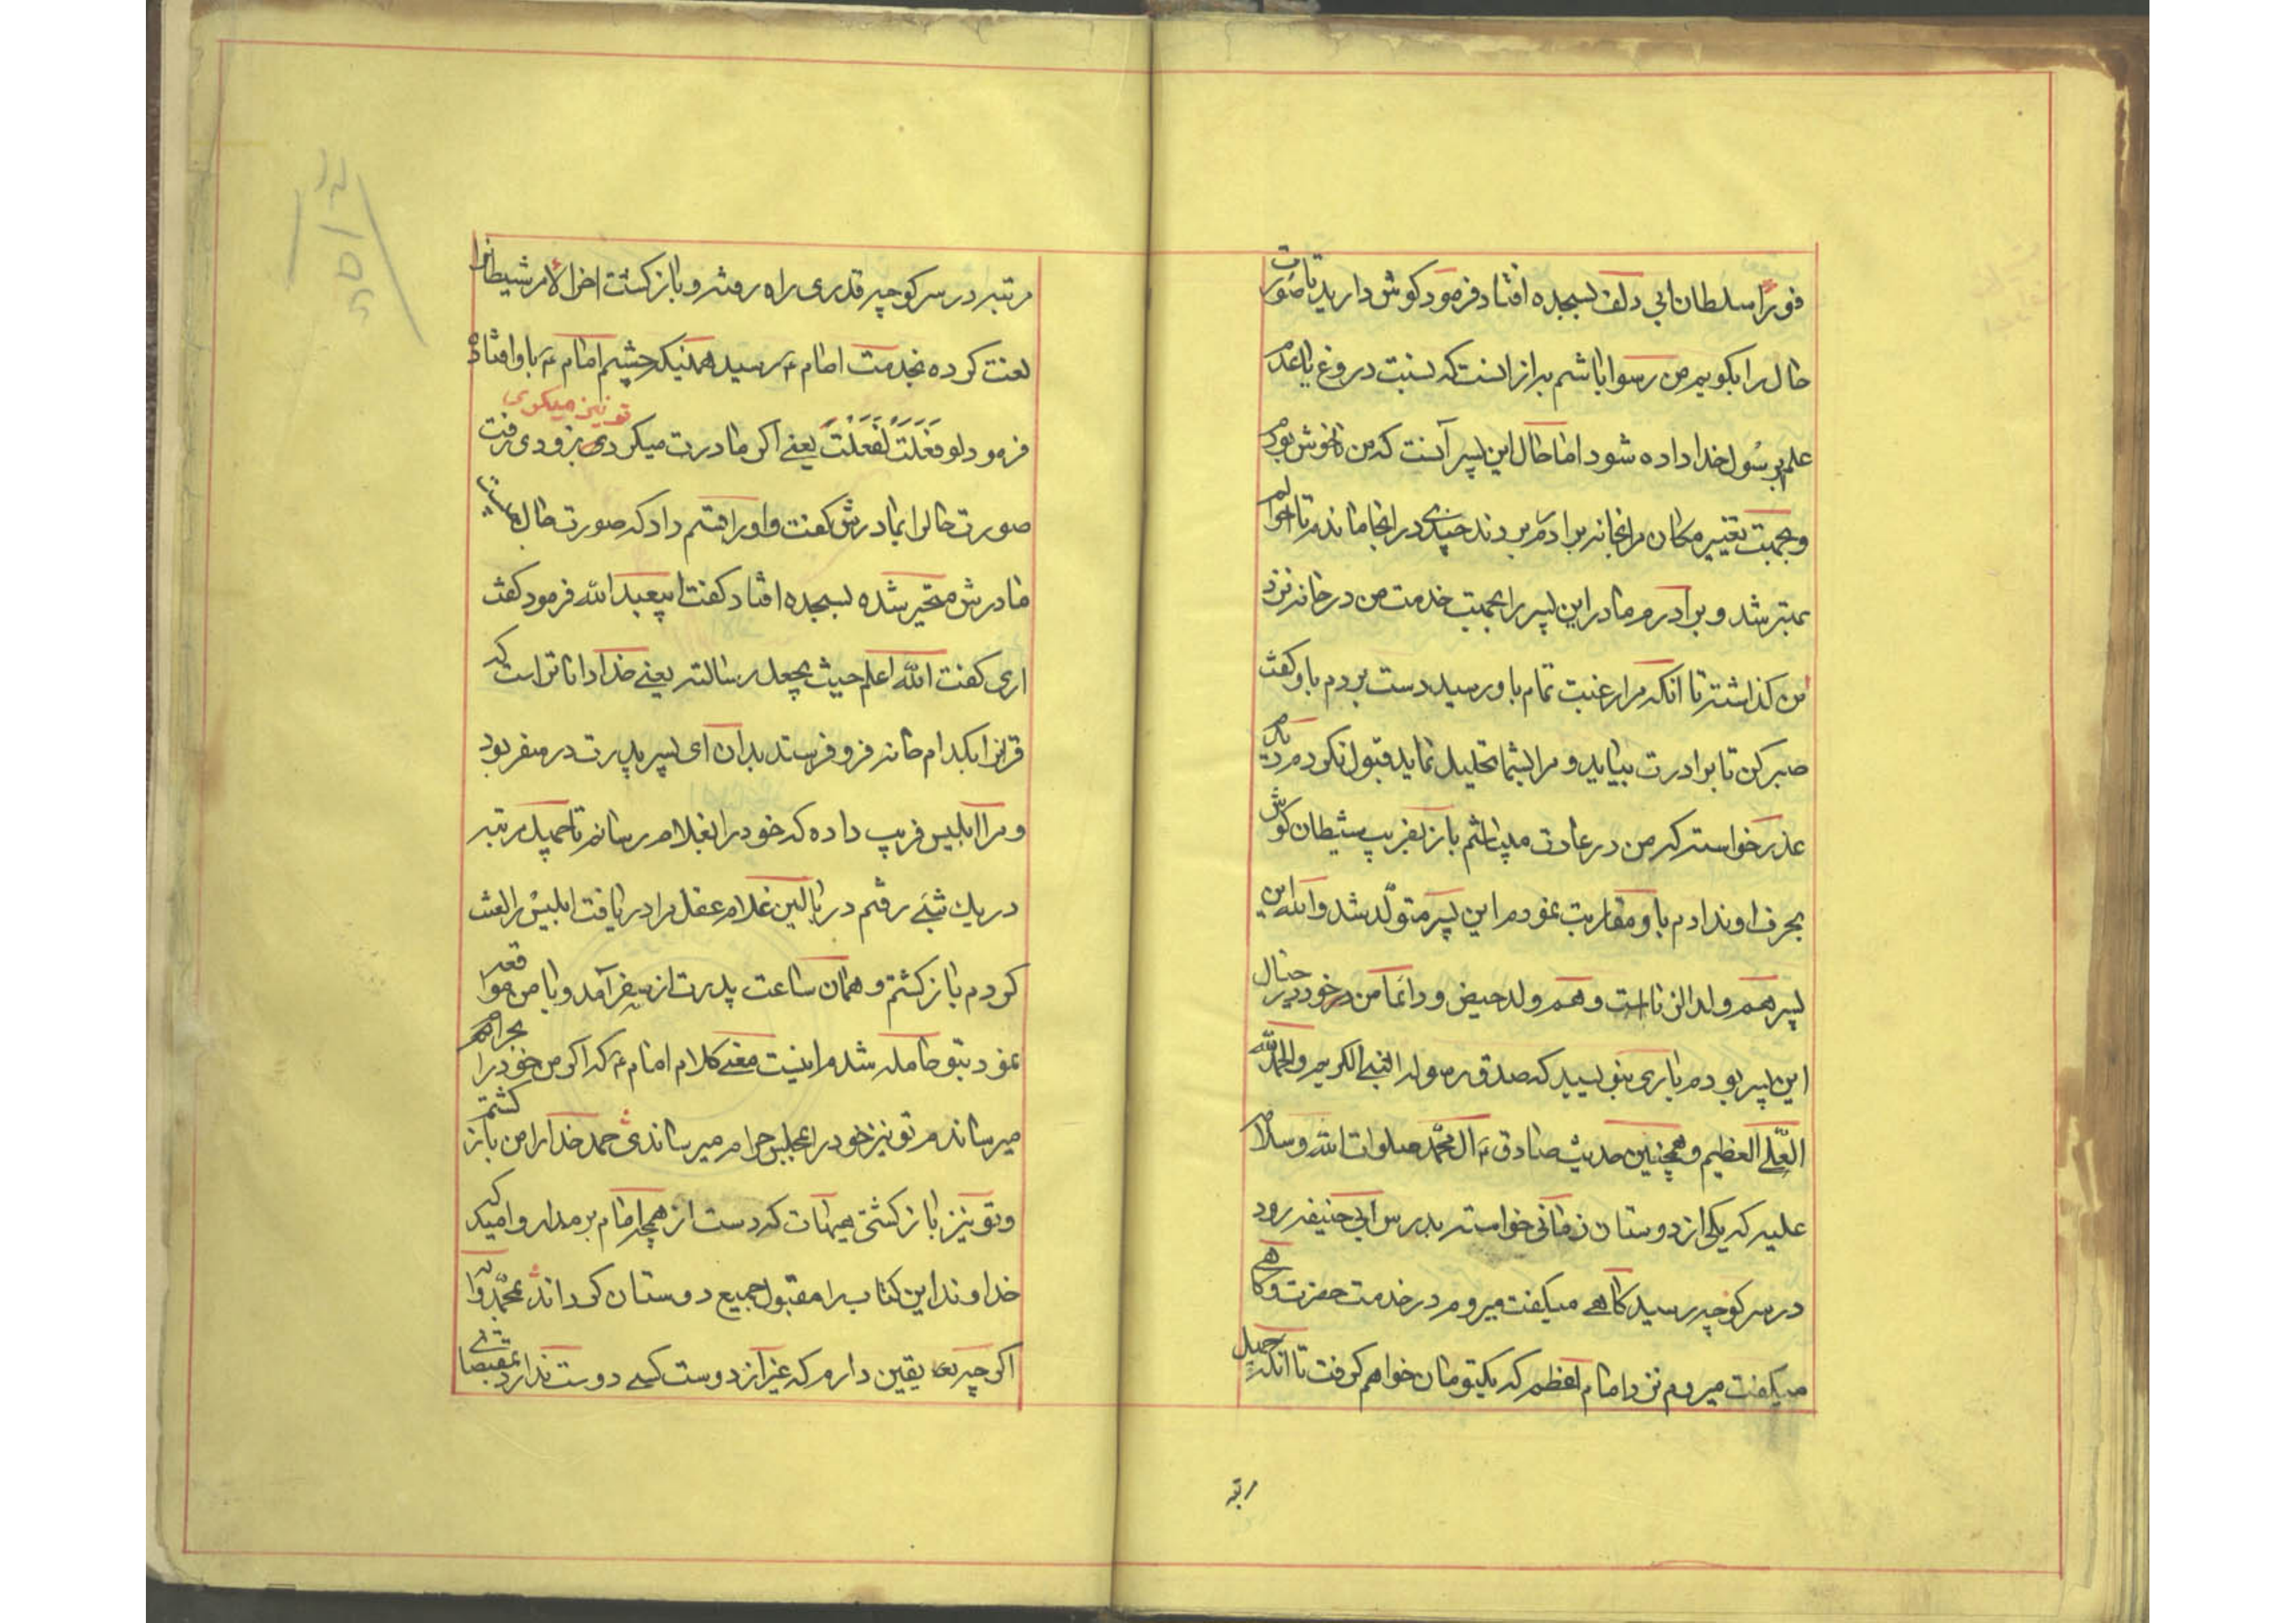 فوراً سلطان ابی دلف بسجده افتاد فرمود گوش دارید تا صورت
حال را بگویم من رسوا باشم به از آنست که نسبت دروغ یا عدم
علم برسول خدا داده شود اما حال این پسر آنست که من ناخوش بودم
و بجهت تغییر مکان مرا بخانه برادرم بردند چندی در انجا ماندم تا احوالم
بهتر شد و برادرم مادر این پسر را بجهت خدمت من در خانه نزد
من گذاشته تا انکه مرا رغبت تمام باو رسید دست بردم باو گفت
صبر کن تا برادرت بیاید و مرا بشما تحلیل نماید قبول نکردم دیگر
عذر خواسته که من در عادت میباشم باز بفریب شیطان گوش
بحرف او ندادم باو مقاربت نمودم این پسر متولد شد والله این
پسر هم ولد الزنا است و هم ولد حیض و دائما من در خود در خیال
این پسر بودم باری بنویسید که صدق رسوله النبی الکریم والحمدلله
العلی العظیم و همچنین حدیث صادق ع ال محمد صلوات الله وسلام
علیه که یکی از دوستان زمانی خواسته بدرس ابی حنیفه رود
در سر کوچه رسید گاهی میگفت میروم در خدمت حضرت و گاهی
میگفت میروم نزد امام اعظم که یکتومان خواهم گرفت تا انکه چهل
رتبه
مرتبه در سر کوچه قدری راه رفته و بازگشت اخر الامر شیطانرا
لعنت کرده بخدمت امام ع رسید همینکه چشم امام ع باو افتاده
تو نیز میکردی
فرمود لو فعلت لفعلت یعنی اگر مادرت میکردی بزودی رفت
صورت حالرا بمادرش گفت و اورا قسم داد که صورت حال چیست
مادرش متحیر شده بسجده افتاد گفت ابیعبدالله فرمود گفت
اری گفت الله اعلم حیث یجعل رسالته یعنی خدا داناتر است که
قرانرا بکدام خانه فرو فرستد بدان ای پسر پدرت در سفر بود
و مرا ابلیس فریب داده که خودرا بغلام رسانم تا چهل مرتبه
در یک شبی رفتم در بالین غلام عقل مرا دریافت ابلیس را لعنت
کردم بازگشتم و همان ساعت پدرت از سفر آمد و با من مواقعه
نمود بتو حامله شدم اینست معنی کلام امام ع که اگر من خودرا بحرام هم
میرساندم تو نیز خودرا بمجلس حرام میرساندی حمد خدارا من بازگشتم
و تو نیز بازگشتی هیهات که دست از همچه امام برمدار و امید که
خداوند این کتاب را مقبول جمیع دوستان گرداند بمحمد وآله
اگرچه یقین دارم که غیر از دوست کسی دوست ندارد بمقتضای